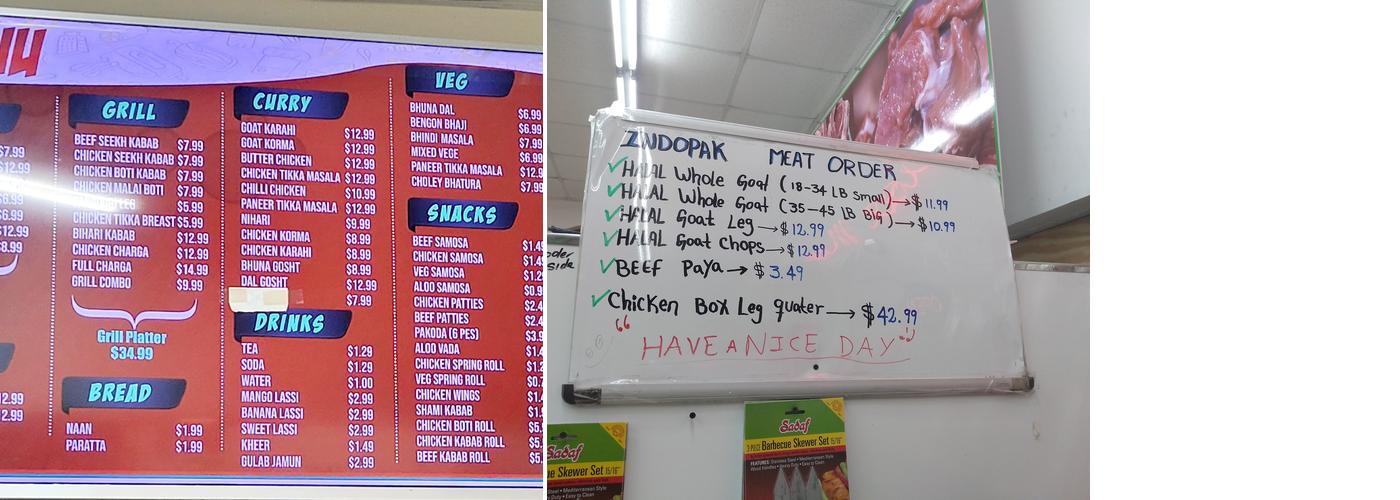 GRILL
BEEF SEEKH KABAB $7.99
CHICKEN SEEKH KABAB $7.99
CHICKEN BOTI KABAB $7.99
CHICKEN MALAI BOTI $7.99
LEG $5.99
CHICKEN TIKKA BREAST $5.99
BIHARI KABAB $12.99
CHICKEN CHARGA $12.99
FULL CHARGA $14.99
GRILL COMBO $9.99
Grill Platter
$34.99
BREAD
NAAN $1.99
PARATTA $1.99
CURRY
GOAT KARAHI $12.99
GOAT KORMA $12.99
BUTTER CHICKEN $12.99
CHICKEN TIKKA MASALA $12.99
CHILLI CHICKEN $10.99
PANEER TIKKA MASALA $12.99
NIHARI $9.99
CHICKEN KORMA $8.99
CHICKEN KARAHI $8.99
BHUNA GOSHT $8.99
DAL GOSHT $12.99
$7.99
DRINKS
TEA $1.29
SODA $1.29
WATER $1.00
MANGO LASSI $2.99
BANANA LASSI $2.99
SWEET LASSI $2.99
KHEER $1.49
GULAB JAMUN $2.99
VEG
BHUNA DAL $6.99
BENGON BHAJI $6.99
BHINDI MASALA $7.99
MIXED VEGE $6.99
PANEER TIKKA MASALA $12.9
CHOLEY BHATURA $7.99
SNACKS
BEEF SAMOSA $1.4
CHICKEN SAMOSA $1.4
VEG SAMOSA $1.2
ALOO SAMOSA $0.9
CHICKEN PATTIES $2.4
BEEF PATTIES $2.4
PAKODA (6 PES) $3.9
ALOO VADA $1.4
CHICKEN SPRING ROLL $1.2
VEG SPRING ROLL $0.7
CHICKEN WINGS $1.4
SHAMI KABAB $1.
CHICKEN BOTI ROLL $5.
CHICKEN KABAB ROLL $5.
BEEF KABAB ROLL $5.
INDOPAK MEAT ORDER
HALAL Whole Goat (18-34 LB Small) → $11.99
HALAL Whole Goat (35-45 LB Big) → $10.99
HALAL Goat Leg → $12.99
HALAL Goat Chops → $12.99
BEEF PaYa → $3.49
Chicken Box Leg quater → $42.99
"HAVE A NICE DAY"
Sadaf
2-PIECE Barbecue Skewer Set 15/16"
FEATURES: Stainless Steel • Mediterranean Style
Wood Handles • Heavy Duty • Easy to Clean
Sadaf
Skewer Set 15/16"